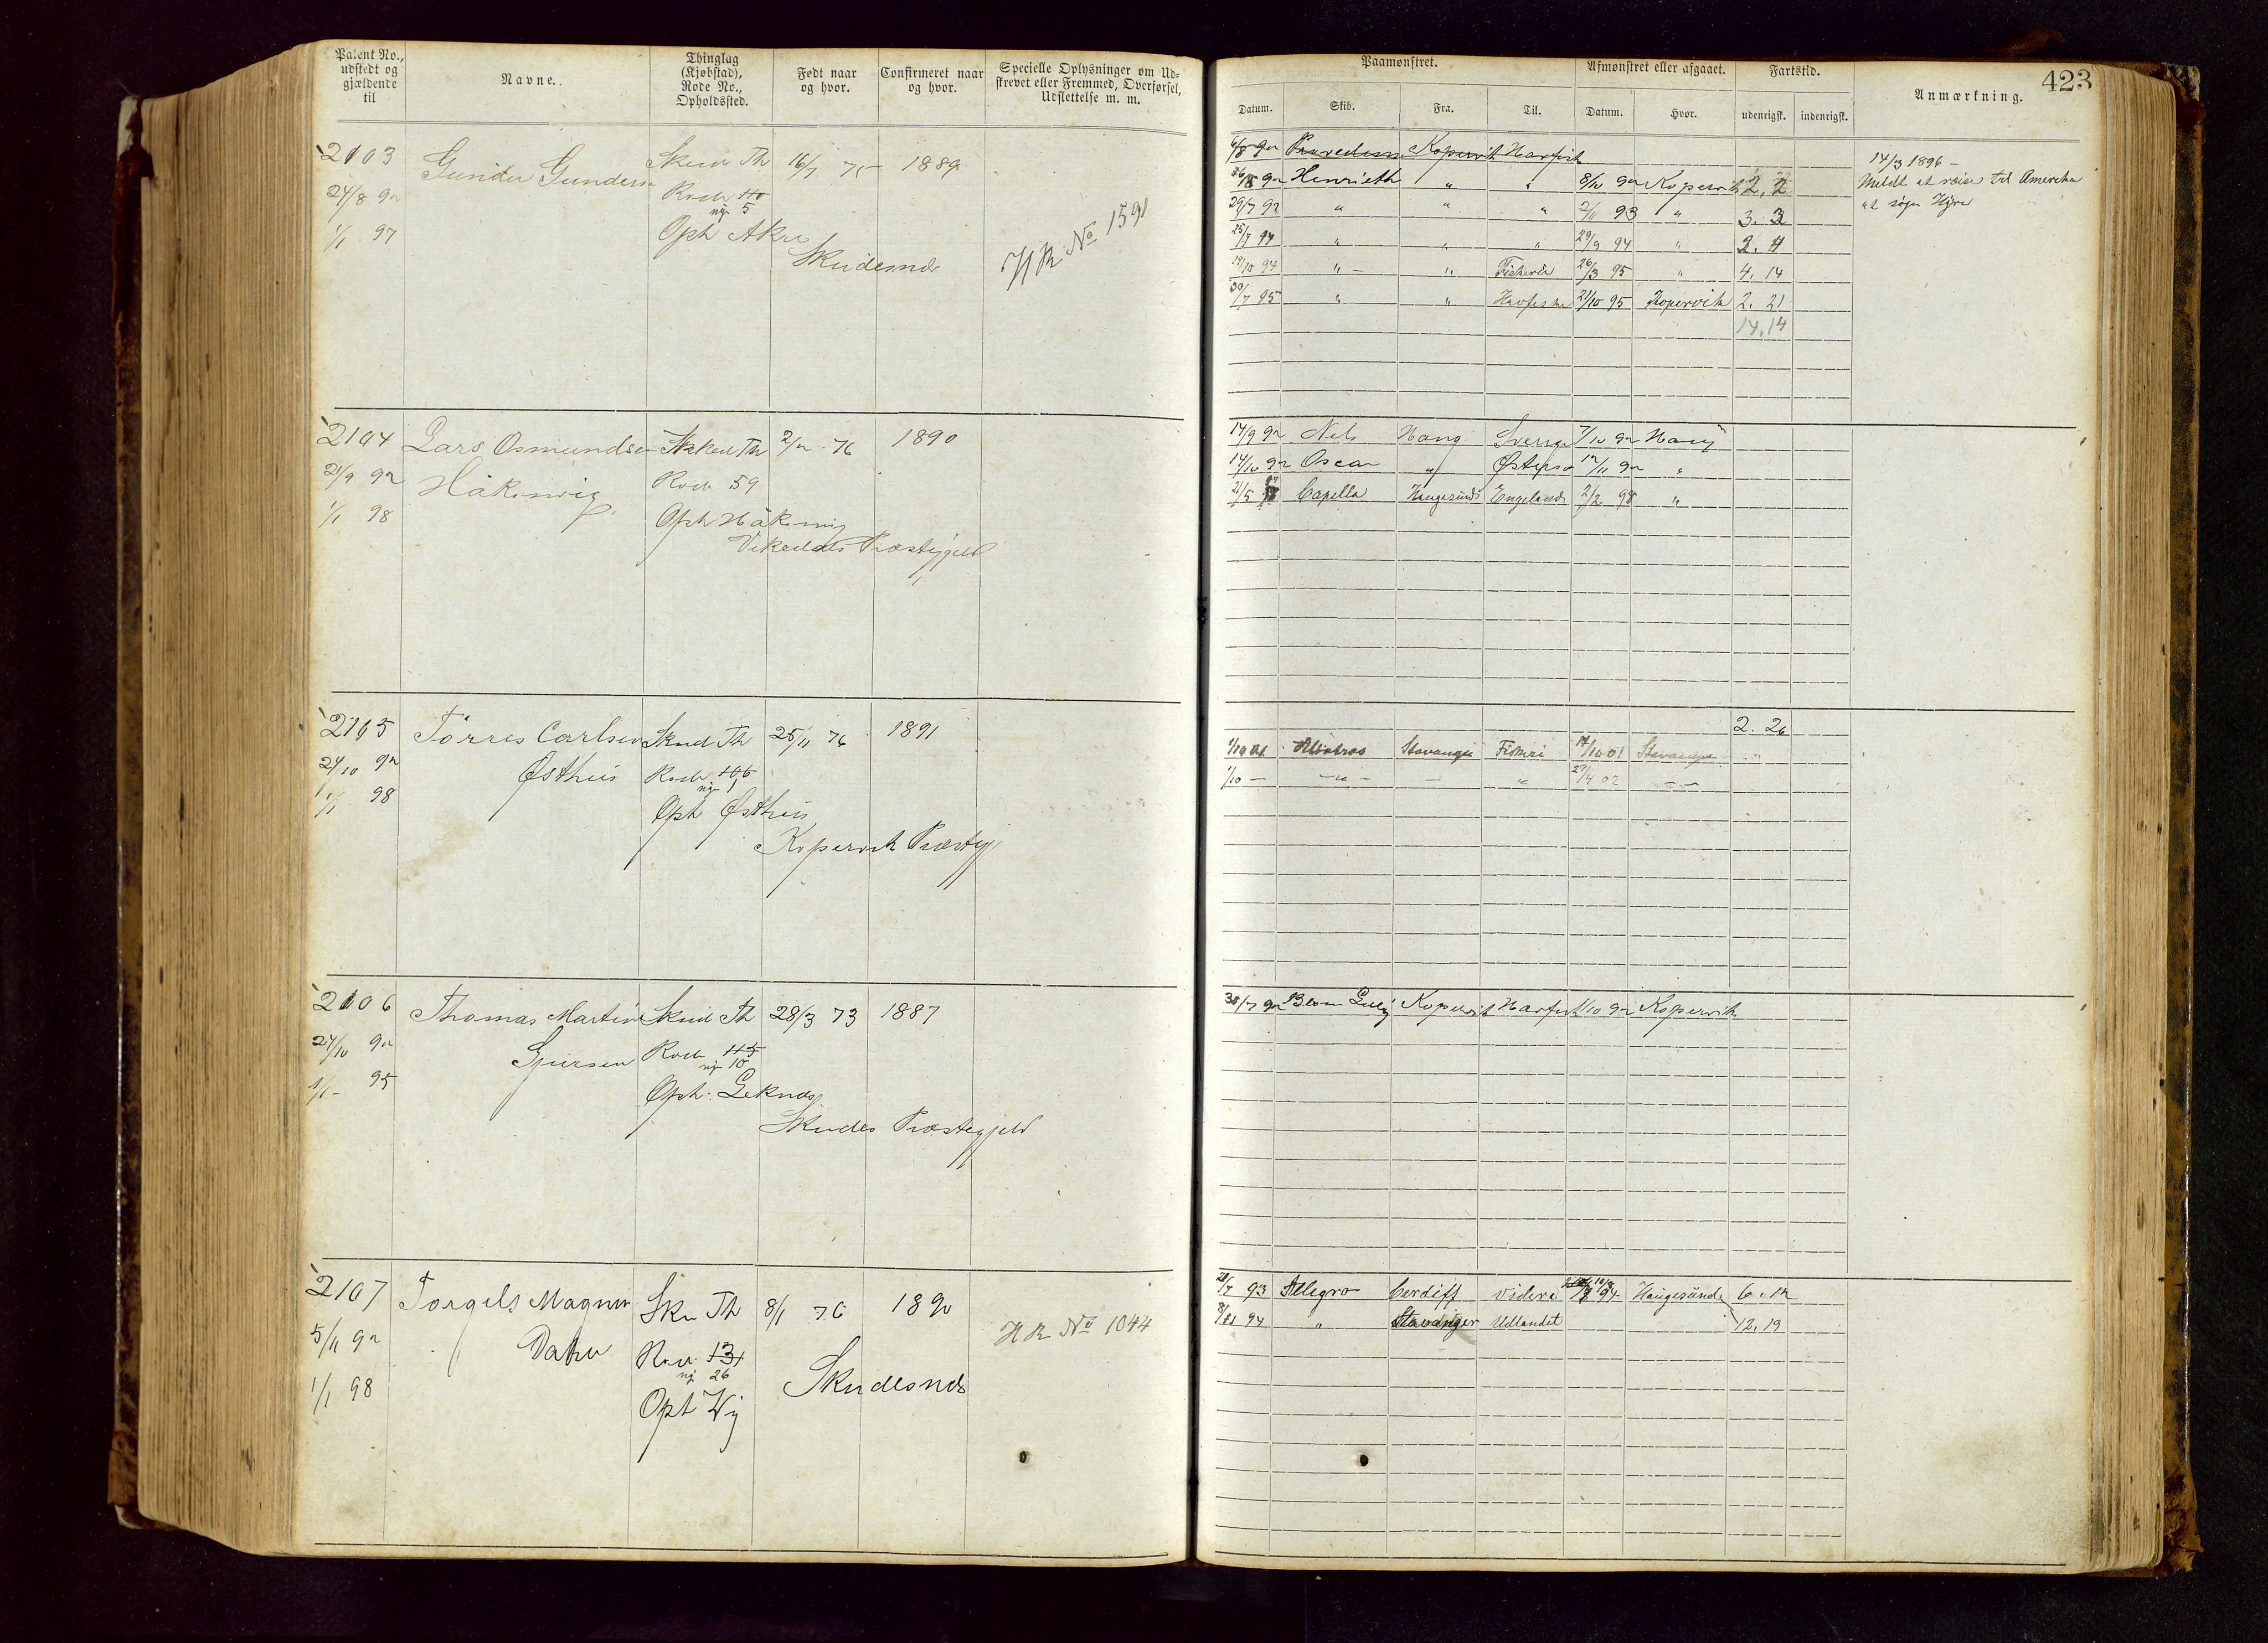 Patent No., udstedt og gjældende til
Navne.
Thinglag (Kjøbstad), Rode No., Opholdssted.
Født naar og hvor.
Confirmeret naar og hvor.
Specielle Oplysninger om Udskrevet eller Fremmed, Overførsel, Udslettelse m. m.
2103
24/8 92
1/1 97
Gunder Gundersen
Skud Th
Rode 110
ny 5
Oph Akre
Skudesnæs
16/7 75
1889
HR No 1591
2104
21/9 92
1/1 98
Lars Osmundsen
Håkinvig
Rode 59
2/2 76
1890
Vikedals Præstegjeld
2105
24/10 92
1/1 98
Tørres Carlsen
Østhus
Skud Th
Rode 106
ny 1
Oph Østhus
Kopervik Præstegj
25/11 76
1891
2106
24/10 92
1/1 - 95
Thomas Martin
Skud Th
Rode 115
ny 10
Oph. Leknæs
Skudes Præstegjeld
28/3 73
1887
2107
5/11 92
1/1 98
Torgils Magnus
Sku Th
Rode 131
ny 26
8/1 76
1890
Skudesnæs
HR No 1044
Paamønstret.
Afmønstret eller afgaaet.
Fartstid.
423
Datum.
Skib.
Fra.
Til.
Datum.
Hvor.
udenrigsk.
indenrigsk.
Anmærkning.
Kopervik Havfisk
26/8 92 Henrieth " " 8/10 92 Kopervik 2. 2
29/7 93 " " " 2/11 93 " 3. 3
25/7 94 " " " 29/9 94 " 2. 4
19/10 94 " - " Fiskeri 26/3 95 " 4. 14
30/7 95 " " Havfiske 21/10 95 Kopervik 2. 21
14.14
14/3 1896 -
Meldt at reise til Amerika
at søge Hyre
14/9 92 Nels Haug Sverige 7/10 92 Haug
14/10 92 Oscar " Østersø 12/11 92 "
21/5 Capella Haugesund Engeland 2/2 98 "
2. 26
1/10 01 Albatros Stavanger Fiskeri 14/10 01 Stavanger
1/10 - - " - - " 23/4 02 - -
30/7 92 Kopervik Havfisk 1/10 92 Kopervik
28/7 93 Allegro Cardiff videre 94 Haugesund 6. 12
94 " Stavanger Udlandet 12. 19